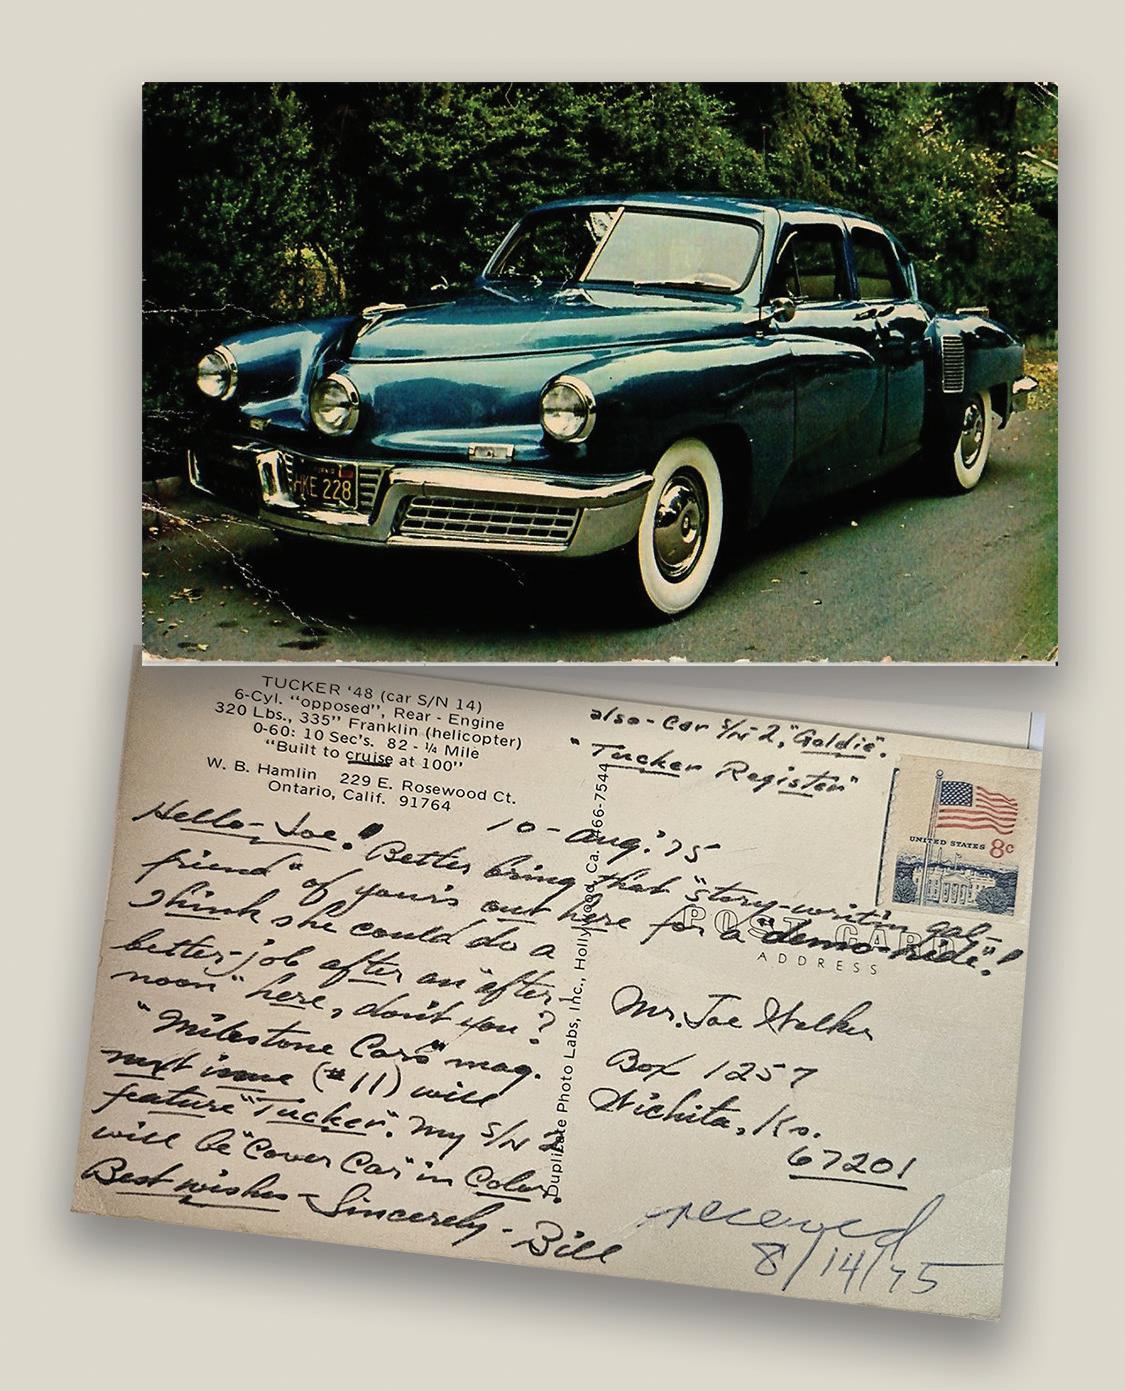 HKE 228
TUCKER '48 (car S/N 14)
6-Cyl. "opposed", Rear - Engine
320 Lbs., 335" Franklin (helicopter)
0-60: 10 Sec's. 82 - ¼ Mile
"Built to cruise at 100"
W. B. Hamlin 229 E. Rosewood Ct.
Ontario, Calif. 91764
also - Car S/N 2, "Goldie".
"Tucker Register"
UNITED STATES 8c
10 - Aug. '75
Hello - Joe! Better bring that "story-writin gal-
friend" of yours out here for a "demo-ride"!
Think she could do a
better-job after an "after-
noon" here, don't you?
"Milestone Cars" mag.
next issue (#11) will
feature "Tucker". My S/N 2
will be "Cover Car" in Color.
Best wishes - Sincerely - Bill
Duplicate Photo Labs, Inc., Hollywood, Ca. 466-7544
POST CARD
ADDRESS
Mr. Joe
Box 1257
Wichita, Ks.
67201
received
8/14/75